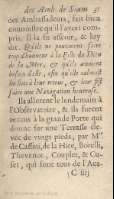 des Amb. de Siam 37
ces Ambassadeurs, fait bien
connoistre qu'il l'avoit com-
pris. Il la fit cesser, & luy
dit, Qu'ils ne pouvoient faire
impunément à la Fille du Dieu
de la Mer, & qu'ils avoient
besoin d'elle, afin qu'elle calmast
les flots à leur retour, & leur fist
faire une Navigation heureuse.
Ils allerent le lendemain à
l'Observatoire, & ils furent
receus à la grande Porte qui
donne sur une Terrasse éle-
vée de vingt pieds, par Mrs
de Cassini, de la Hire, Borelli,
Thevenot, Couplet, & Cu-
set, qui sont tous de l'Aca-
C iiij